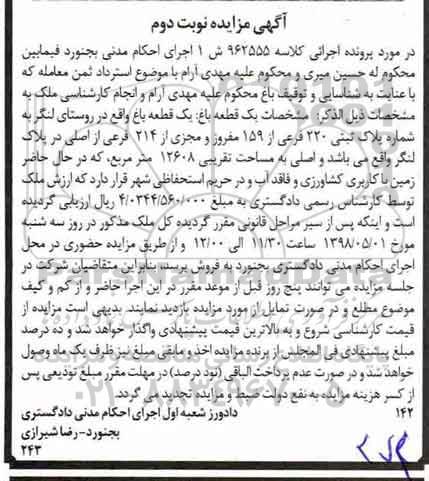 آگهی مزایده نوبت دوم
در مورد پرونده اجرائی کلاسه ۹۶۲۵۵۵ ش ۱ اجرای احکام مدنی بجنورد فیمابین
محکوم له حسین میری و محکوم علیه مهدی آرام با موضوع استرداد ثمن معامله که
با عنایت به شناسایی و توقیف باغ محکوم علیه مهدی آرام و انجام کارشناسی ملک به
مشخصات ذیل الذکر: مشخصات یک قطعه باغ: یک قطعه باغ واقع در روستای لنگر به
شماره پلاک ثبتی ۲۲۰ فرعی از ۱۵۹ مفروز و مجزی از ۲۱۴ فرعی از اصلی در پلاک
لنگر واقع می باشد و اصلی به مساحت تقریبی ۱۲۶۰۸ متر مربع، که در حال حاضر
زمین با کاربری کشاورزی و فاقد آب و در حریم استحفاظی شهر قرار دارد که ارزش ملک
توسط کارشناس رسمی دادگستری به مبلغ ۴/۰۳۴۴/۵۶۰/۰۰۰ ریال ارزیابی گردیده
است و اینکه پس از سیر مراحل قانونی مقرر گردیده کل ملک مذکور در روز سه شنبه
مورخ ۱۳۹۸/۰۵/۰۱ ساعت ۱۱/۳۰ الی ۱۲/۰۰ و از طریق مزایده حضوری در محل
اجرای احکام مدنی دادگستری بجنورد به فروش برسد بنابراین متقاضیان شرکت در
جلسه مزایده می توانند پنج روز قبل از موعد مقرر در این اجرا حاضر و از کم و کیف
موضوع مطلع و در صورت تمایل از مورد مزایده بازدید نمایند. بدیهی است مزایده از
قیمت کارشناسی شروع و به بالاترین قیمت پیشنهادی واگذار خواهد شد و ده درصد
مبلغ پیشنهادی فی المجلس از برنده مزایده اخذ و مابقی مبلغ نیز ظرف یک ماه وصول
خواهد شد و در صورت عدم پرداخت الباقی (نود درصد) در مهلت مقرر مبلغ تودیعی پس
از کسر هزینه مزایده به نفع دولت ضبط و مزایده تجدید می گردد.
۱۴۲ دادورز شعبه اول اجرای احکام مدنی دادگستری
بجنورد-رضا شیرازی
۲۴۳